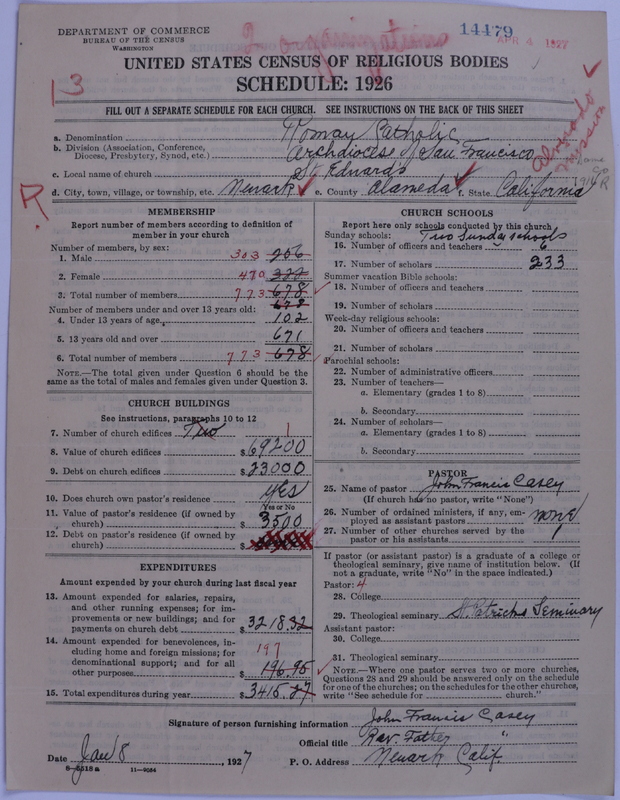 DEPARTMENT OF COMMERCE
BUREAU OF THE CENSUS
WASHINGTON
2 organizations
14479
APR 4 1927
UNITED STATES CENSUS OF RELIGIOUS BODIES
SCHEDULE: 1926
13
FILL OUT A SEPARATE SCHEDULE FOR EACH CHURCH. SEE INSTRUCTIONS ON THE BACK OF THIS SHEET
a. Denomination Roman Catholic
b. Division (Association, Conference, Diocese, Presbytery, Synod, etc.) Archdiocese of San Francisco
c. Local name of church St Edwards
Alvarado Mission
1916
R
d. City, town, village, or township, etc. Newark e. County Alameda f. State California
R.
MEMBERSHIP
Report number of members according to definition of member in your church
Number of members, by sex:
1. Male 303 206
2. Female 470 322
3. Total number of members 773 678
678
Number of members under and over 13 years old:
4. Under 13 years of age 102
5. 13 years old and over 671
6. Total number of members 773 678
NOTE.—The total given under Question 6 should be the same as the total of males and females given under Question 3.
CHURCH BUILDINGS
See instructions, paragraphs 10 to 12
7. Number of church edifices Two 1
8. Value of church edifices $ 69200
9. Debt on church edifices $ 23000
10. Does church own pastor's residence yes
Yes or No
11. Value of pastor's residence (if owned by church) $ 3500
12. Debt on pastor's residence (if owned by church) $
EXPENDITURES
Amount expended by your church during last fiscal year
13. Amount expended for salaries, repairs, and other running expenses; for improvements or new buildings; and for payments on church debt $ 3218.32
14. Amount expended for benevolences, including home and foreign missions; for denominational support; and for all other purposes $ 196.95
197
15. Total expenditures during year $ 3415.27
CHURCH SCHOOLS
Report here only schools conducted by this church
Sunday schools: Two Sunday schools
16. Number of officers and teachers 6
17. Number of scholars 233
Summer vacation Bible schools:
18. Number of officers and teachers
19. Number of scholars
Week-day religious schools:
20. Number of officers and teachers
21. Number of scholars
Parochial schools:
22. Number of administrative officers
23. Number of teachers—
a. Elementary (grades 1 to 8)
b. Secondary
24. Number of scholars—
a. Elementary (grades 1 to 8)
b. Secondary
PASTOR
25. Name of pastor John Francis Casey
(If church has no pastor, write "None")
26. Number of ordained ministers, if any, employed as assistant pastors none
27. Number of other churches served by the pastor or his assistants
If pastor (or assistant pastor) is a graduate of a college or theological seminary, give name of institution below. (If not a graduate, write "No" in the space indicated.)
Pastor: 4
28. College
29. Theological seminary St. Patricks Seminary
Assistant pastor:
30. College
31. Theological seminary
NOTE.—Where one pastor serves two or more churches, Questions 28 and 29 should be answered only on the schedule for one of the churches; on the schedules for the other churches, write "See schedule for ______ church."
Signature of person furnishing information John Francis Casey
Official title Rev. Father "
Date Jan 8, 1927 P. O. Address Newark Calif.
8-5518a 11-9034